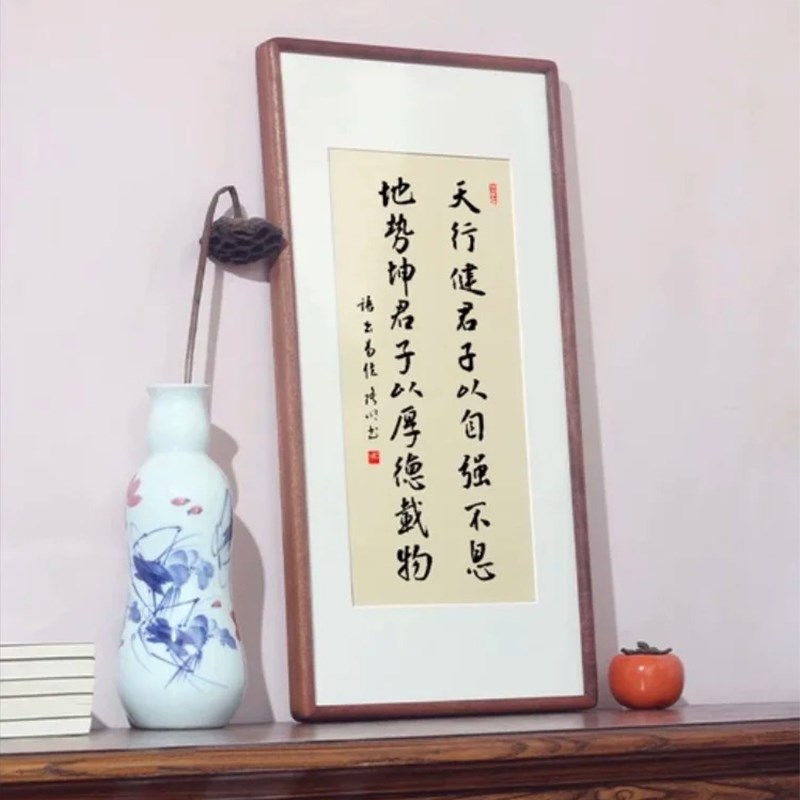 天行健君子以自强不息
地势坤君子以厚德载物
语出易经